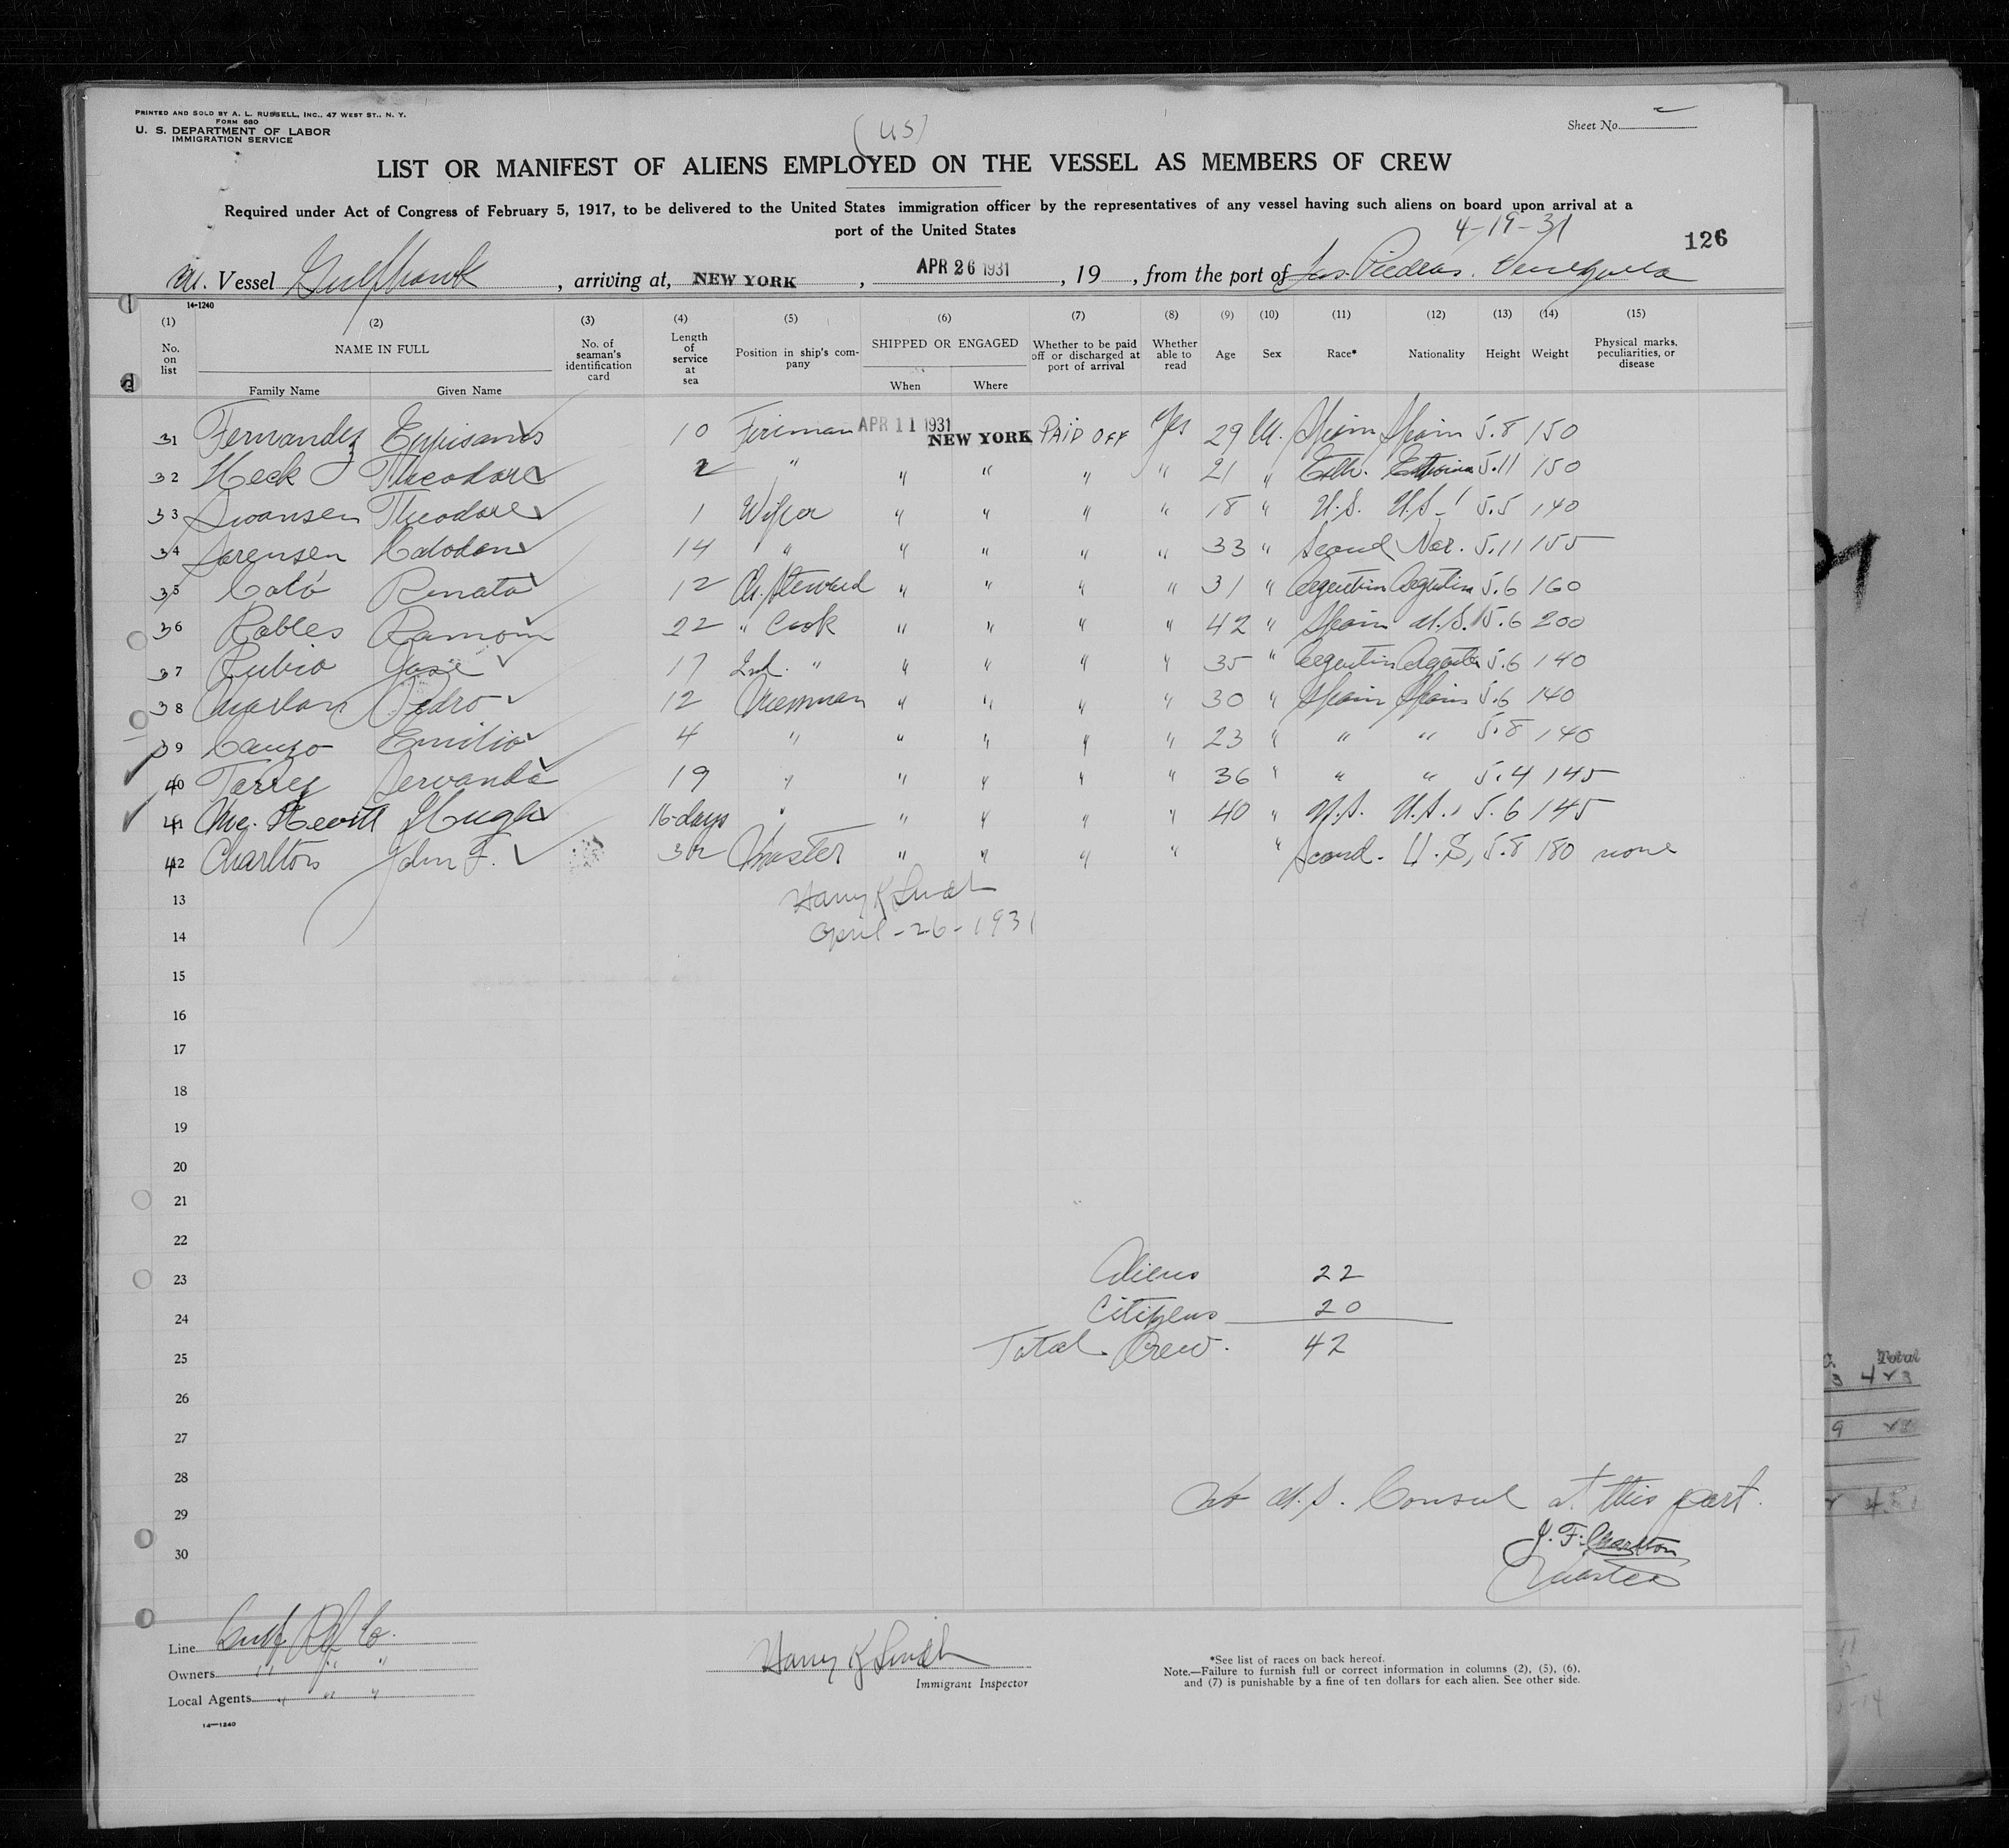 PRINTED AND SOLD BY A. L. RUSSELL, INC., 47 WEST ST., N. Y.
FORM 680
U. S. DEPARTMENT OF LABOR
IMMIGRATION SERVICE
(US)
Sheet No.
LIST OR MANIFEST OF ALIENS EMPLOYED ON THE VESSEL AS MEMBERS OF CREW
Required under Act of Congress of February 5, 1917, to be delivered to the United States immigration officer by the representatives of any vessel having such aliens on board upon arrival at a
port of the United States
4-19-31
126
Vessel Gulfhawk, arriving at, NEW YORK, APR 26 1931, 19, from the port of Las Piedras. Venezuela
14-1240
(1) (2) (3) (4) (5) (6) (7) (8) (9) (10) (11) (12) (13) (14) (15)
No. on list NAME IN FULL No. of seaman's identification card Length of service at sea Position in ship's company SHIPPED OR ENGAGED Whether to be paid off or discharged at port of arrival Whether able to read Age Sex Race* Nationality Height Weight Physical marks, peculiarities, or disease
Family Name Given Name When Where
31 Fernandez 10 Fireman APR 11 1931 NEW YORK PAID OFF Yes 29 M. Spain Spain 5.8 150
32 Heck Theodore 2 " " " " " 21 " Esth. 5.11 150
33 Swansen Theodore 1 Wiper " " " " 18 " U.S. U.S. 5.5 140
34 Sorensen 14 " " " " " 33 " Scand Nor. 5.11 155
35 Coló Renato 12 Ch. Steward " " " " 31 " Argentin Argentin 5.6 160
36 Robles Ramon 22 " Cook " " " " 42 " Spain U.S. 5.6 200
37 Rubio Jose 17 2nd. " " " " " 35 " Argentin 5.6 140
38 Pedro 12 Messman " " " " 30 " Spain Spain 5.6 140
39 Emilio 4 " " " " " 23 " " " 5.8 140
40 Torrey Servando 19 " " " " " 36 " " " 5.4 145
41 Mc. Hewitt Hugh 16-days " " " " " 40 " U.S. U.S. 5.6 145
42 Charlton John F. Master " " " " " Scand. U.S, 5.8 180 none
13 Harry K Smith
14 April-26-1931
15
16
17
18
19
20
21
22
23 Aliens 22
24 Citizens 20
25 Total Crew. 42
26
27
28
No U.S. Consul at this port.
29
J. F. Charlton
30
Master
Line Gulf Rf Co.
Owners " " "
Local Agents " " "
14—1240
Harry K Smith
Immigrant Inspector
*See list of races on back hereof.
Note.—Failure to furnish full or correct information in columns (2), (5), (6),
and (7) is punishable by a fine of ten dollars for each alien. See other side.
Total